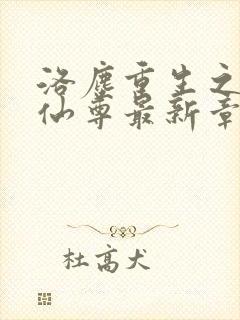 洛塵重生之
仙尊最新章
杜高犬